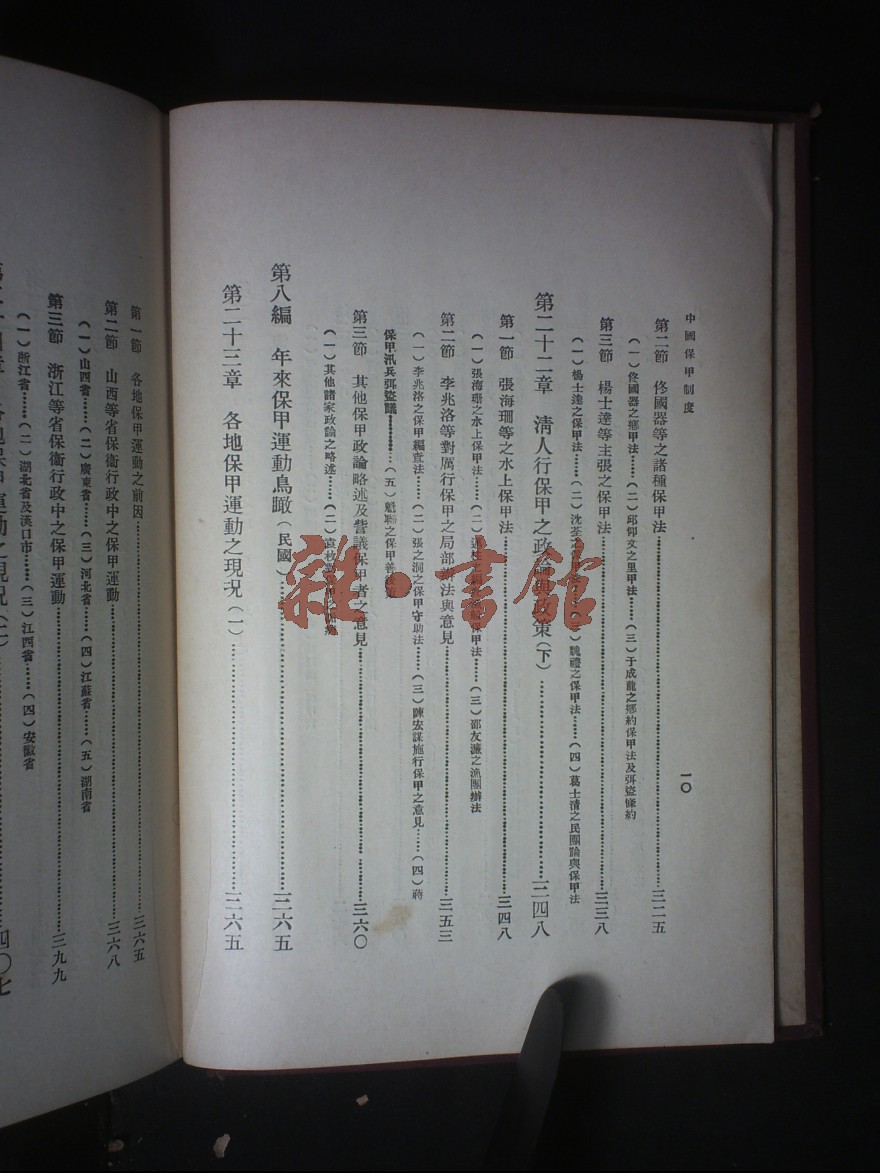 中國保甲制度
一〇
第二節 佟國器等之諸種保甲法 三二五
(一)佟國器之鄉甲法……(二)邱仰文之里甲法……(三)于成龍之鄉約保甲法及弭盜條約
第三節 楊士達等主張之保甲法 三三八
(一)楊士達之保甲法……(二)沈
(三)魏禮之保甲法……(四)葛士清之民團論與保甲法
第二十二章 清人行保甲之政論與政策(下) 三四八
第一節 張海珊等之水上保甲法 三四八
(一)張海珊之水上保甲法……(二)
保甲法……(三)邵友濂之漁團辦法
第二節 李兆洛等對厲行保甲之局部辦法與意見 三五三
(一)李兆洛之保甲編查法……(二)張之洞之保甲守助法……(三)陳宏謀施行保甲之意見……(四)蔣
保甲汛兵弭盜議……(五)魁聯之保甲善
第三節 其他保甲政論略述及訾議保甲者之意見 三六〇
(一)其他諸家政論之略述……(二)袁枚對保甲之
第八編 年來保甲運動鳥瞰(民國) 三六五
第二十三章 各地保甲運動之現況(一) 三六五
第一節 各地保甲運動之前因 三六五
第二節 山西等省保衛行政中之保甲運動 三六八
(一)山西省……(二)廣東省……(三)河北省……(四)江蘇省……(五)湖南省
第三節 浙江等省保衛行政中之保甲運動 三九九
(一)浙江省……(二)湖北省及漢口市……(三)江西省……(四)安徽省
四〇七
雜·書館